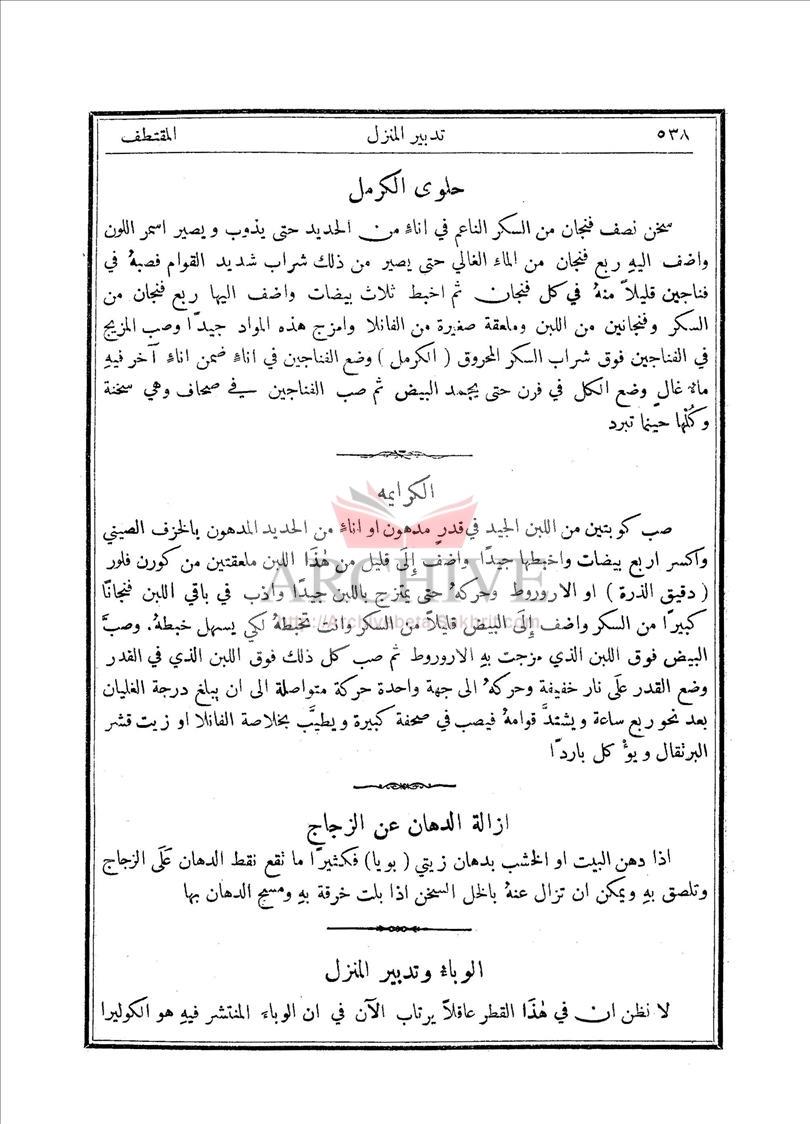 ٥٣٨ تدبير المنزل المقتطف
حلوى الكرمل
سخن نصف فنجان من السكر الناعم في اناءٍ من الحديد حتى يذوب ويصير اسمر اللون
واضف اليهِ ربع فنجان من الماء الغالي حتى يصير من ذلك شراب شديد القوام فصبهُ في
فناجين قليلاً منهُ في كل فنجان ثم اخبط ثلاث بيضات واضف اليها ربع فنجان من
السكر وفنجانين من اللبن وملعقة صغيرة من الفانلا وامزج هذه المواد جيدًا وصب المزيج
في الفناجين فوق شراب السكر المحروق ( الكرمل ) وضع الفناجين في اناءٍ ضمن اناءٍ آخر فيهِ
مائ غالٍ وضع الكل في فرن حتى يجمد البيض ثم صب الفناجين في صحاف وهي سخنة
وكُلْها حينما تبرد
الكرايمه
صب كوبتين من اللبن الجيد في قدرٍ مدهون او اناءٍ من الحديد المدهون بالخزف الصيني
واكسر اربع بيضات واخبطها جيدًا واضف إِلَى قليل من هٰذَا اللبن ملعقتين من كورن فلور
( دقيق الذرة ) او الاروروط وحركهُ حتى يمتزج باللبن جيدًا واذب في باقي اللبن فنجانًا
كبيرًا من السكر واضف إِلَى البيض قليلاً من السكر وانت تخبطهُ لكي يسهل خبطهُ. وصبَّ
البيض فوق اللبن الذي مزجت بهِ الاروروط ثم صب كل ذلك فوق اللبن الذي في القدر
وضع القدر عَلَى نار خفيفة وحركهُ الى جهة واحدة حركة متواصلة الى ان يبلغ درجة الغليان
بعد نحو ربع ساعة ويشتدَّ قوامهُ فيصب في صحفة كبيرة ويطيَّب بخلاصة الفانلا او زيت قشر
البرتقال ويؤْكل باردًا
ARCHIVE
http://Archivebeta.Sakhrit.com
ازالة الدهان عن الزجاج
اذا دهن البيت او الخشب بدهان زيتي ( بويا ) فكثيرًا ما نقع نقط الدهان عَلَى الزجاج
وتلصق بهِ ويمكن ان تزال عنهُ بالخل السخن اذا بلت خرقة بهِ ومسح الدهان بها
الوباءُ وتدبير المنزل
لا نظن ان في هٰذَا القطر عاقلاً يرتاب الآن في ان الوباءَ المنتشر فيهِ هو الكوليرا